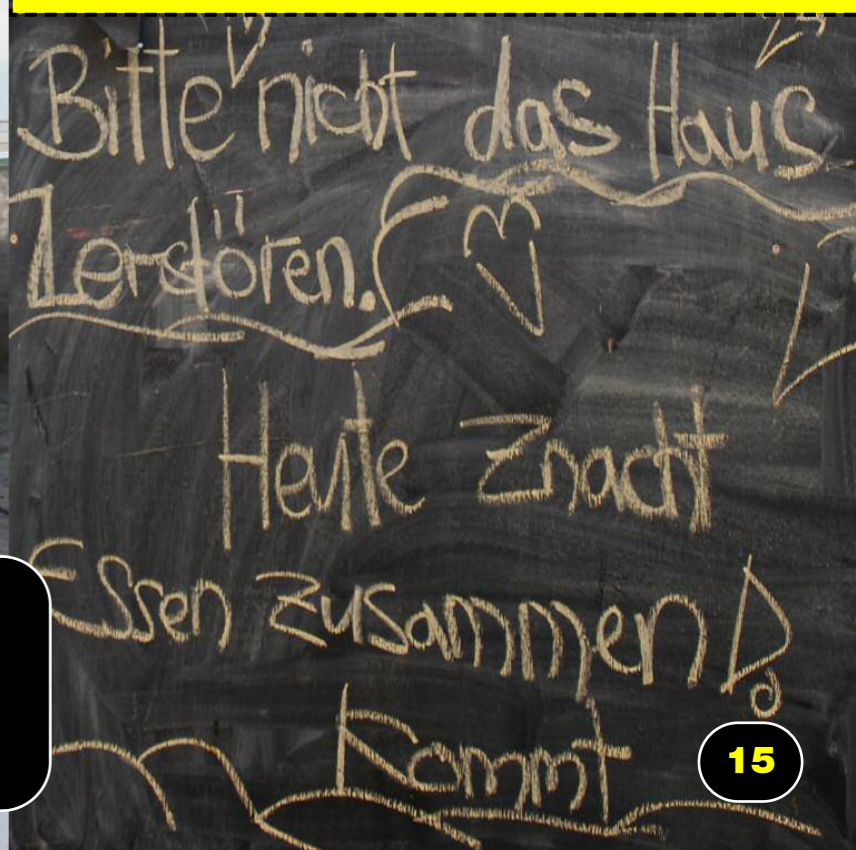 Bitte nicht das Haus
Zerstören.
Heute Znacht
Essen zusammen!
Kommt
15